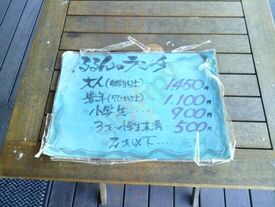 るるんのランチ
大人(中学生以上)‥‥1450円
老年(70才以上)‥‥1,100円
小学生‥‥900円
3才〜小学生未満‥500円
2才以下‥‥